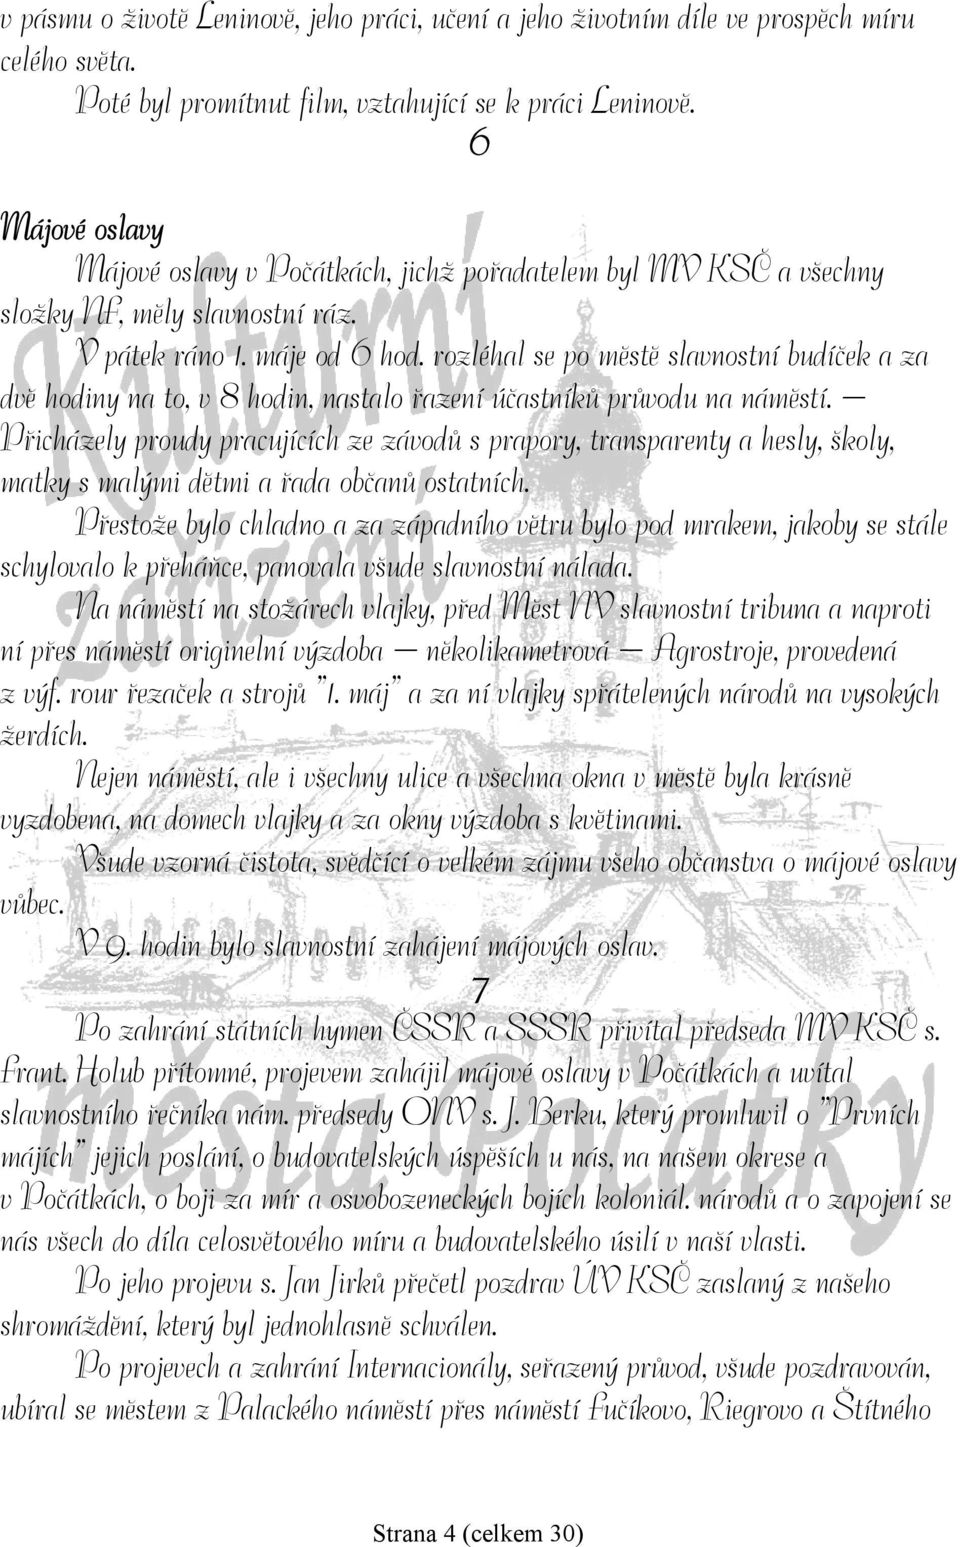 v pásmu o životě Leninově, jeho práci, učení a jeho životním díle ve prospěch míru
celého světa.
Poté byl promítnut film, vztahující se k práci Leninově.
6
Májové oslavy
Májové oslavy v Počátkách, jichž pořadatelem byl MV KSČ a všechny
složky NF, měly slavnostní ráz.
V pátek ráno 1. máje od 6 hod. rozléhal se po městě slavnostní budíček a za
dvě hodiny na to, v 8 hodin, nastalo řazení účastníků průvodu na náměstí. –
Přicházely proudy pracujících ze závodů s prapory, transparenty a hesly, školy,
matky s malými dětmi a řada občanů ostatních.
Přestože bylo chladno a za západního větru bylo pod mrakem, jakoby se stále
schylovalo k přeháňce, panovala všude slavnostní nálada.
Na náměstí na stožárech vlajky, před Měst NV slavnostní tribuna a naproti
ní přes náměstí originelní výzdoba – několikametrová – Agrostroje, provedená
z výf. rour řezaček a strojů "1. máj" a za ní vlajky spřátelených národů na vysokých
žerdích.
Nejen náměstí, ale i všechny ulice a všechna okna v městě byla krásně
vyzdobena, na domech vlajky a za okny výzdoba s květinami.
Všude vzorná čistota, svědčící o velkém zájmu všeho občanstva o májové oslavy
vůbec.
V 9. hodin bylo slavnostní zahájení májových oslav.
7
Po zahrání státních hymen ČSSR a SSSR přivítal předseda MV KSČ s.
Frant. Holub přítomné, projevem zahájil májové oslavy v Počátkách a uvítal
slavnostního řečníka nám. předsedy ONV s. J. Berku, který promluvil o "Prvních
májích" jejich poslání, o budovatelských úspěších u nás, na našem okrese a
v Počátkách, o boji za mír a osvobozeneckých bojích koloniál. národů a o zapojení se
nás všech do díla celosvětového míru a budovatelského úsilí v naší vlasti.
Po jeho projevu s. Jan Jirků přečetl pozdrav ÚV KSČ zaslaný z našeho
shromáždění, který byl jednohlasně schválen.
Po projevech a zahrání Internacionály, seřazený průvod, všude pozdravován,
ubíral se městem z Palackého náměstí přes náměstí Fučíkovo, Riegrovo a Štítného
Kulturní
zařízení
města Počátky
Strana 4 (celkem 30)